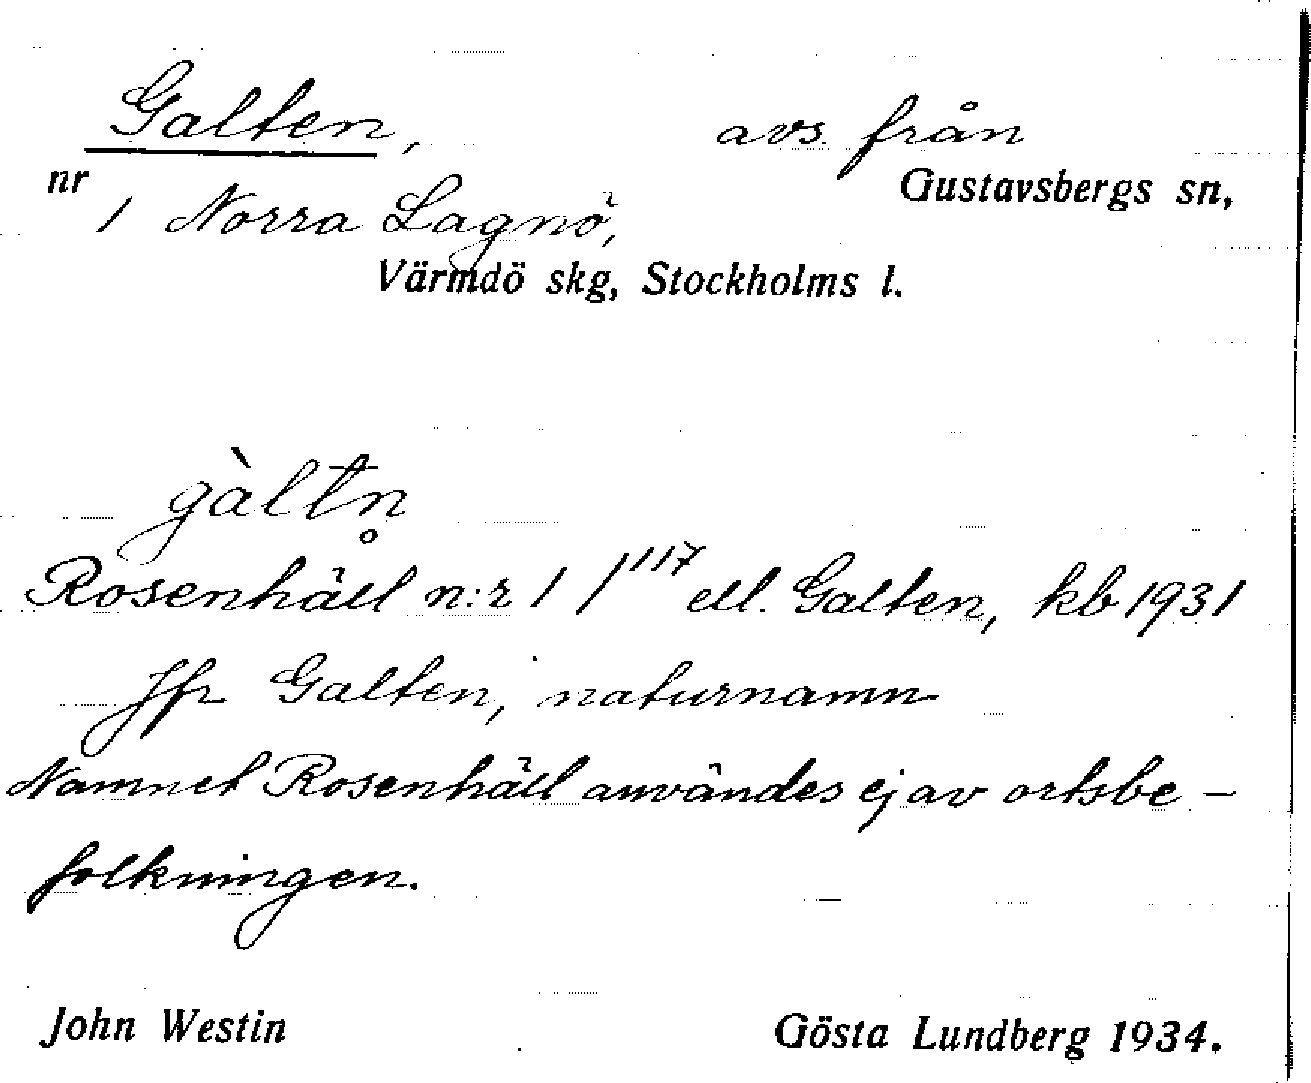 Galten, avs. från
nr 1 Norra Lagnö, Gustavsbergs sn,
Värmdö skg, Stockholms l.
gàltn̥
Rosenhäll n:r 1 /117 ell. Galten, kb 1931
Jfr Galten, naturnamn
Namnet Rosenhäll användes ej av ortsbe-
folkningen.
John Westin Gösta Lundberg 1934.